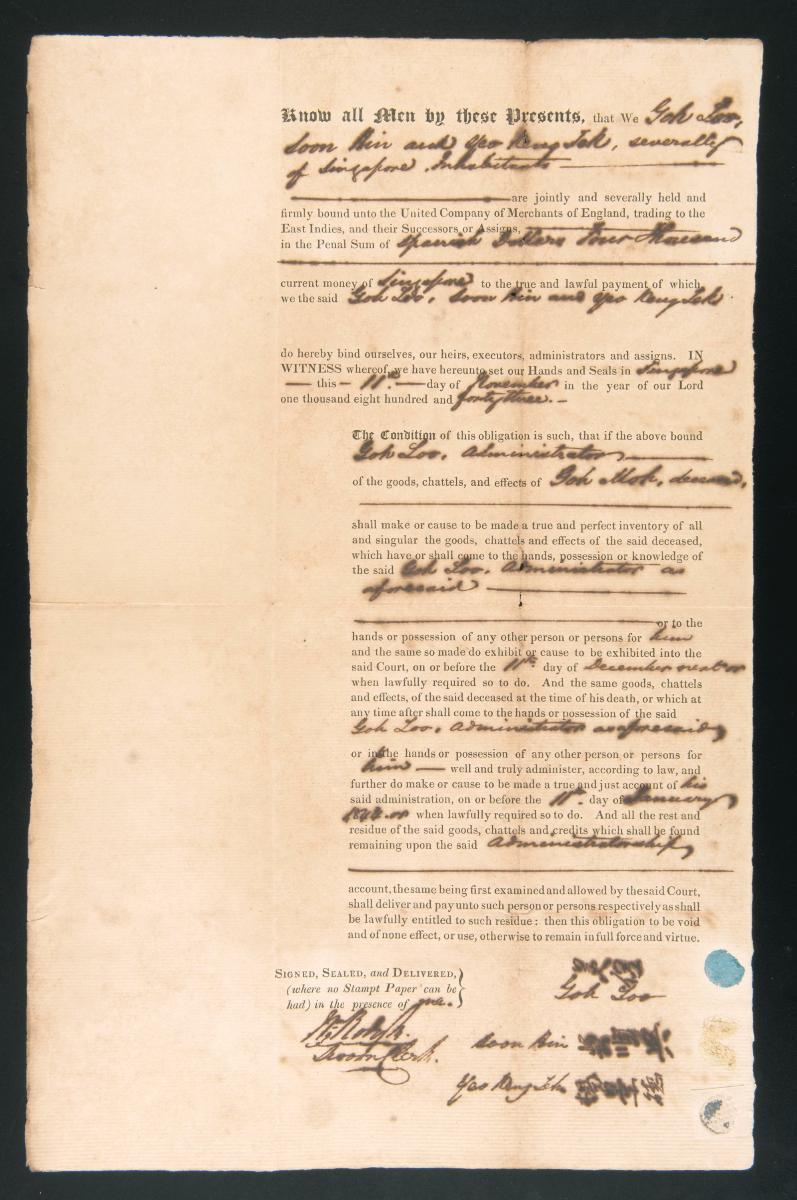 Know all Men by these Presents, that We Goh Loo,
Soon Hin and Yeo Keng Tek, severally
of Singapore Inhabitants
are jointly and severally held and
firmly bound unto the United Company of Merchants of England, trading to the
East Indies, and their Successors or Assigns,
in the Penal Sum of Spanish Dollars Four Thousand
current money of Singapore to the true and lawful payment of which
we the said Goh Loo, Soon Hin and Yeo Keng Tek
do hereby bind ourselves, our heirs, executors, administrators and assigns. IN
WITNESS whereof, we have hereunto set our Hands and Seals in Singapore
— this — 11th — day of November in the year of our Lord
one thousand eight hundred and forty three. —
The Condition of this obligation is such, that if the above bound
Goh Loo, Administrator
of the goods, chattels, and effects of Goh Moh, deceased,
shall make or cause to be made a true and perfect inventory of all
and singular the goods, chattels and effects of the said deceased,
which have or shall come to the hands, possession or knowledge of
the said Goh Loo, Administrator as
aforesaid
or to the
hands or possession of any other person or persons for him
and the same so made do exhibit or cause to be exhibited into the
said Court, on or before the 11th day of December next or
when lawfully required so to do. And the same goods, chattels
and effects, of the said deceased at the time of his death, or which at
any time after shall come to the hands or possession of the said
Goh Loo, Administrator as aforesaid
or in the hands or possession of any other person or persons for
him — well and truly administer, according to law, and
further do make or cause to be made a true and just account of his
said administration, on or before the 11th day of January
1844 or when lawfully required so to do. And all the rest and
residue of the said goods, chattels and credits which shall be found
remaining upon the said Administratorship
account, the same being first examined and allowed by the said Court,
shall deliver and pay unto such person or persons respectively as shall
be lawfully entitled to such residue: then this obligation to be void
and of none effect, or use, otherwise to remain in full force and virtue.
SIGNED, SEALED, and DELIVERED,
(where no Stampt Paper can be
had) in the presence of me.
Goh Loo
Soon Hin
Yeo Keng Tek